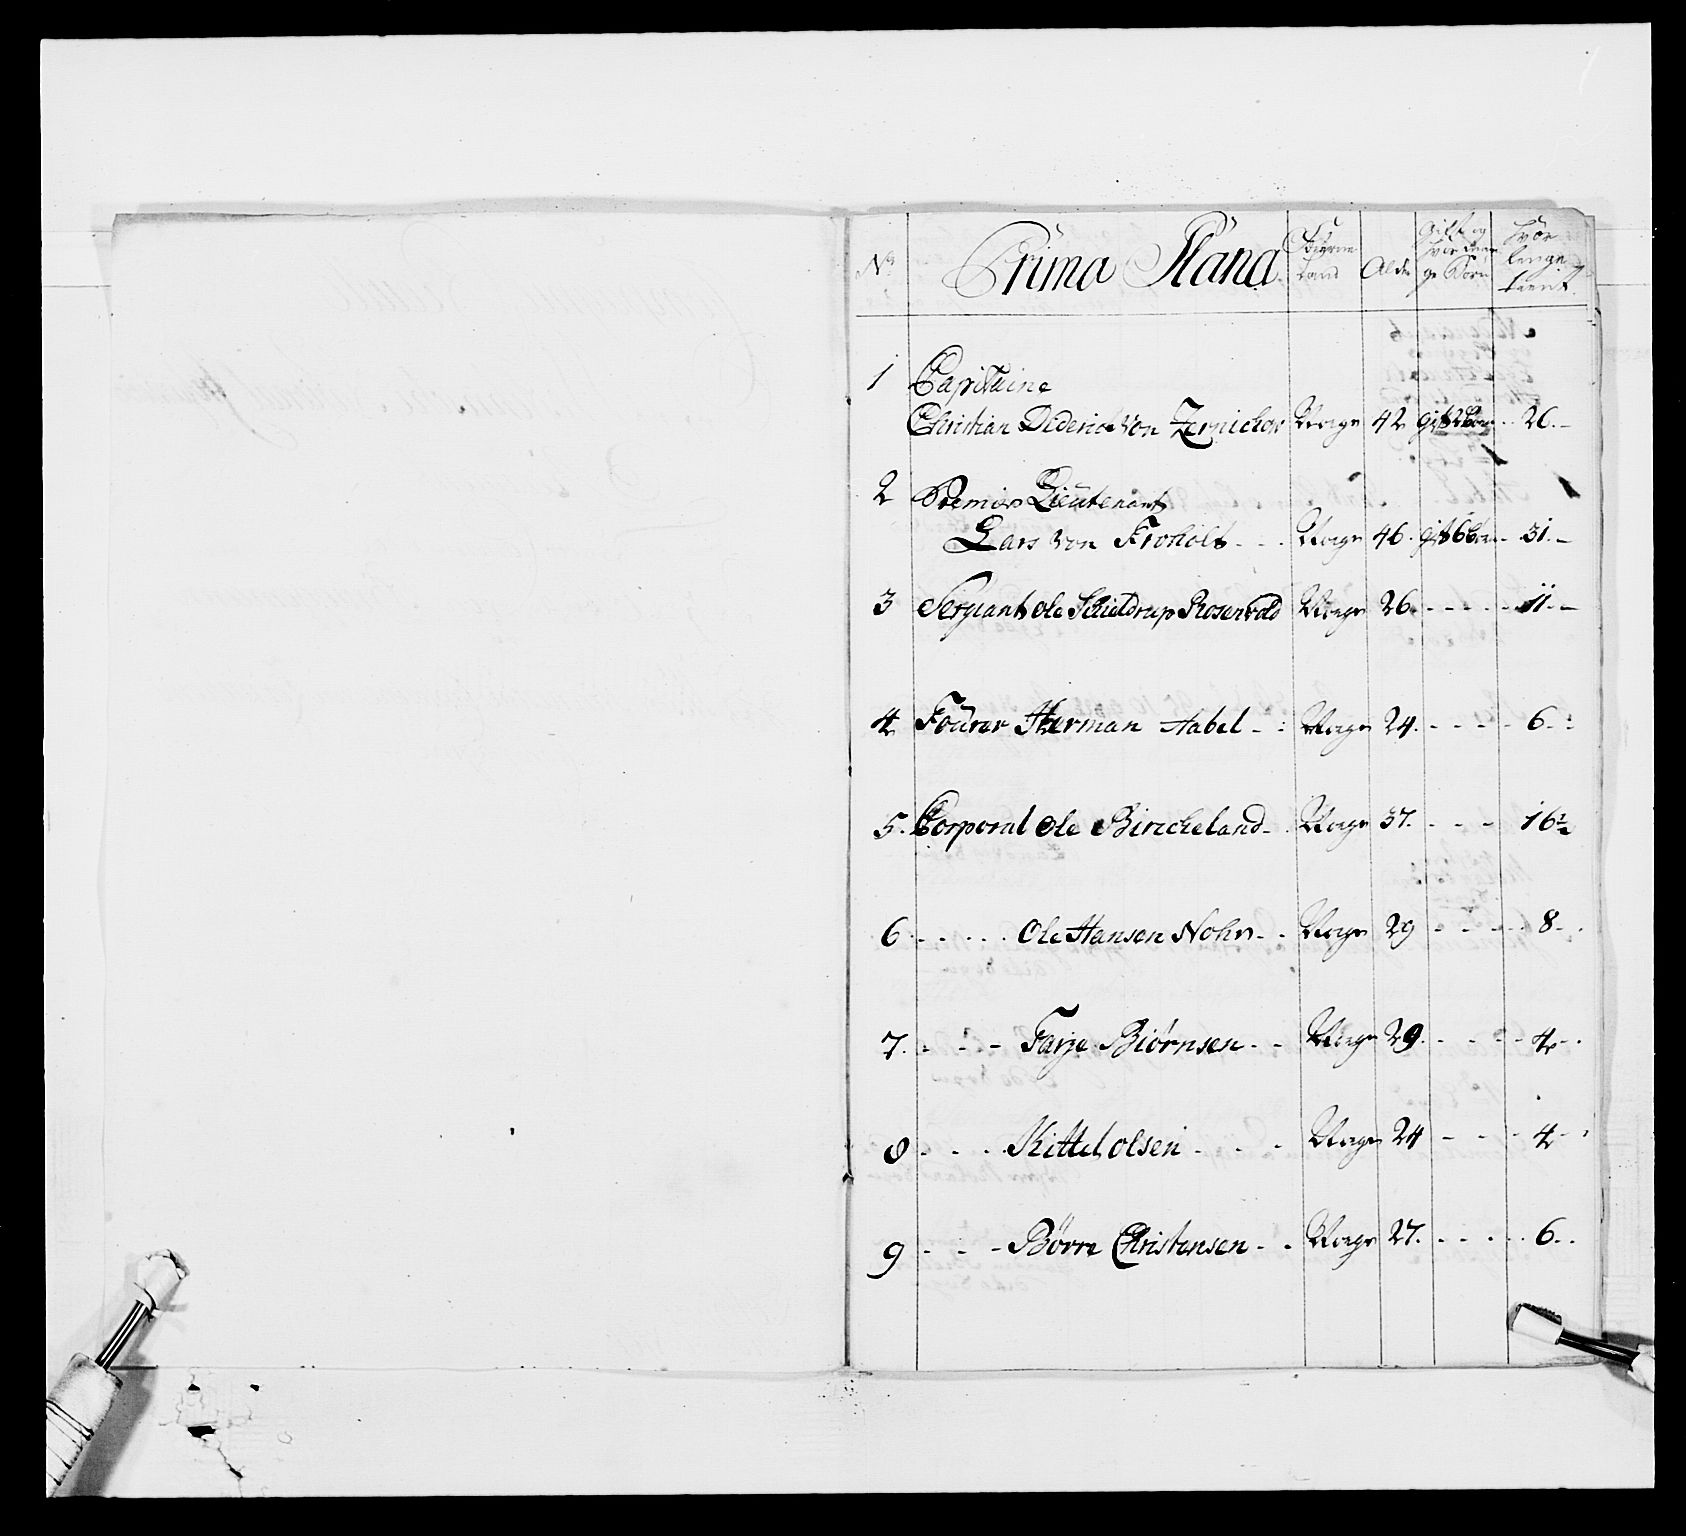 No. Prima Plana Föderne Land Alder Gift og hvor mange Börn hvor lenge tient.
1 Capitaine
Christian Dederich von Zernichow Norge 42 gift 2 börn 26. -
2 Premier Lieutenant
Lars von Froholt - - Norge 46. gift 6 börn - 31. -
3 Sergiant Ole Schieldrup Rosenvold Norge 26. - - - - 11. -
4 Fourer Herman Aabel - - Norge 24. - - - - 6. -
5. Corporal Ole Bircheland - Norge 37. - - - 16½
6 - - - - Ole Hansen Nohr - - Norge 29 - - - - 8 - -
7. - - - Tarje Biörnsen - - Norge 29. - - - - 4 - -
8 - - - Kittel Olsen - - - Norge 24 - - - 4 - -
9 - - - Börre Christensen - - Norge 27. - - - - 6. -